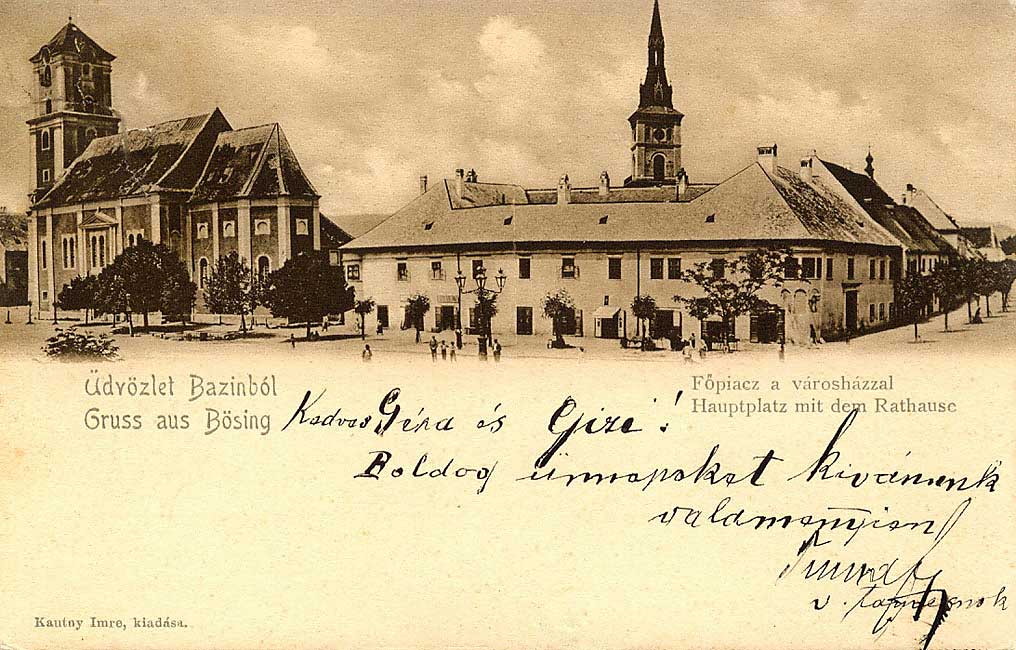 Üdvözlet Bazinból
Gruss aus Bösing
Főpiacz a városházzal
Hauptplatz mit dem Rathause
Kedves Géza és Gizi!
Boldog ünnepeket kivánunk
valamennyien
Kautny Imre, kiadása.